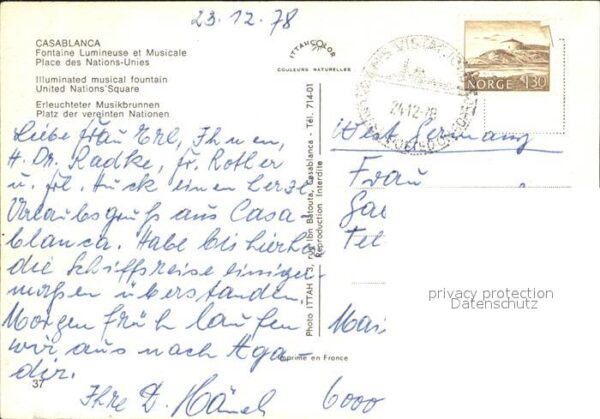 23.12.78
CASABLANCA
Fontaine Lumineuse et Musicale
Place des Nations-Unies
Illuminated musical fountain
United Nations'Square
Erleuchteter Musikbrunnen
Platz der vereinten Nationen
ITTAHCOLOR
COULEURS NATURELLES
NORGE 130
24.12.78
Liebe Frau Erl, Ihnen,
H. Dr. Radtke, Fr. Rotler
u. Frl. Huck einen herzl.
Urlaubsgruß aus Casa-
blanca. Habe bis hierher
die Schiffsreise einiger-
maßen überstanden.
Morgen früh laufen
wir aus nach Aga-
dir.
Ihre D.
37
Photo ITTAH 3, rue Ibn Batouta, Casablanca - Tél. 714-01
Reproduction Interdite
Imprimé en France
West Germany
Frau
Tel
privacy protection
Datenschutz
Mai
6000